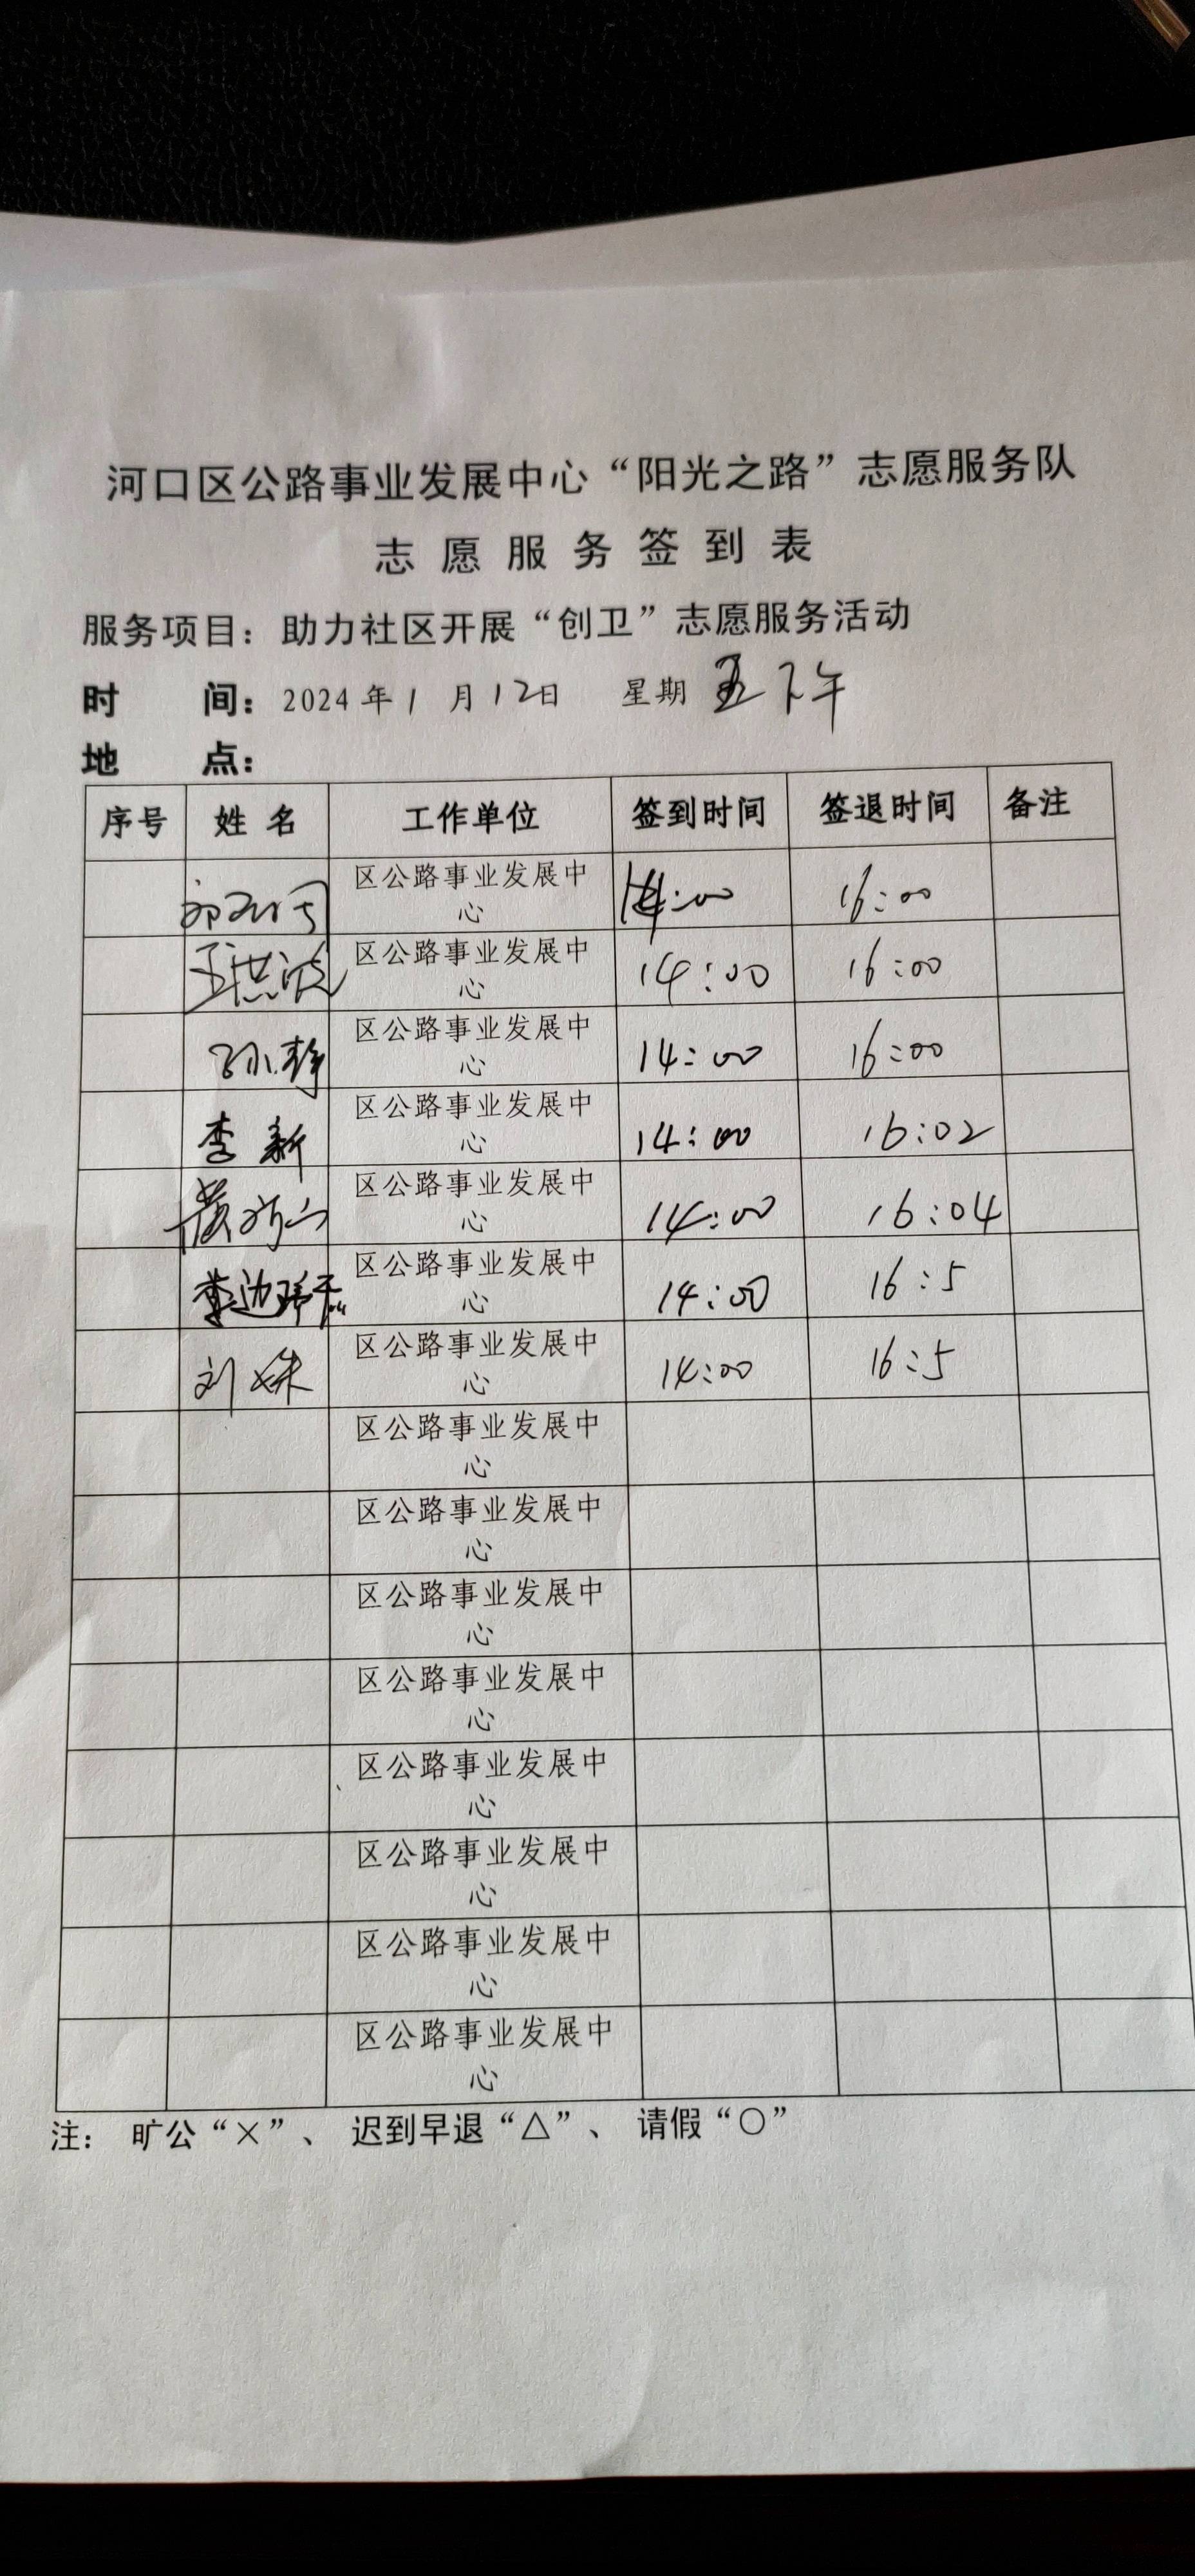 河口区公路事业发展中心“阳光之路”志愿服务队
志愿服务签到表
服务项目：助力社区开展“创卫”志愿服务活动
时 间：2024年1月12日 星期五下午
地 点：
序号 姓名 工作单位 签到时间 签退时间 备注
区公路事业发展中
心 14:00 16:00
区公路事业发展中
王洪波 心 14:00 16:00
区公路事业发展中
孙静 心 14:00 16:00
区公路事业发展中
李新 心 14:00 16:02
区公路事业发展中
心 14:00 16:04
区公路事业发展中
心 14:00 16:5
区公路事业发展中
刘姝 心 14:00 16:5
区公路事业发展中
心
区公路事业发展中
心
区公路事业发展中
心
区公路事业发展中
心
区公路事业发展中
心
区公路事业发展中
心
区公路事业发展中
心
区公路事业发展中
心
注： 旷公“×”、 迟到早退“△”、 请假“○”